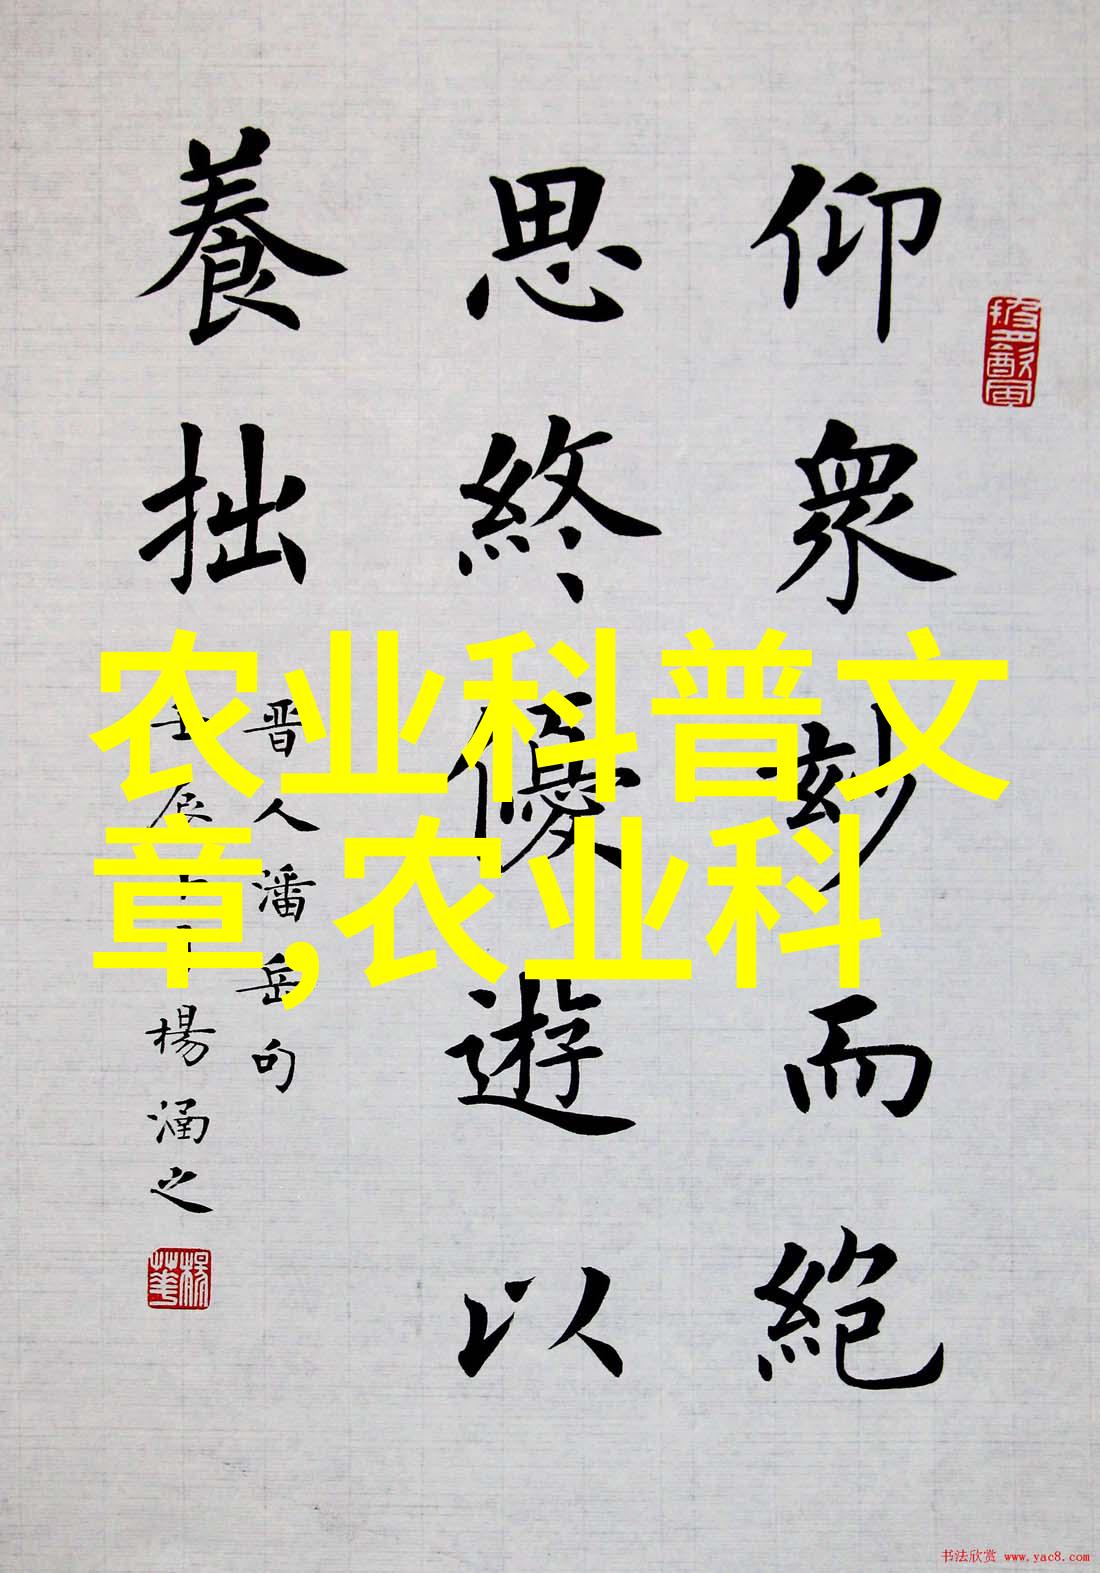 仰衆妙而絕
思終優遊以
養拙
晋人潘岳句
壬辰
楊涵之
农业科普文
章,农业科
书法欣赏 www.yac8.com